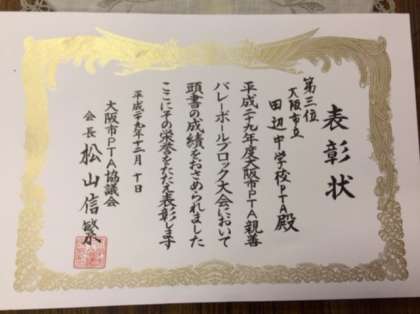 表彰状
第三位
大阪市立
田辺中学校PTA殿
平成二十九年度大阪市PTA親善
バレーボールブロック大会において
頭書の成績をおさめられました
ここにその栄誉をたたえ表彰します
平成二十九年十二月十日
大阪市PTA協議会
会長 松山信繁